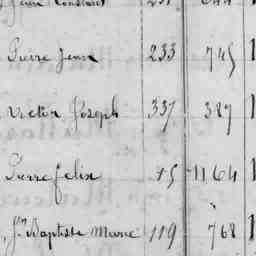 Pierre Jean 233 745
Victor Joseph 337 387
Pierre felix 15 1164
Jn Baptiste Marie 119 768